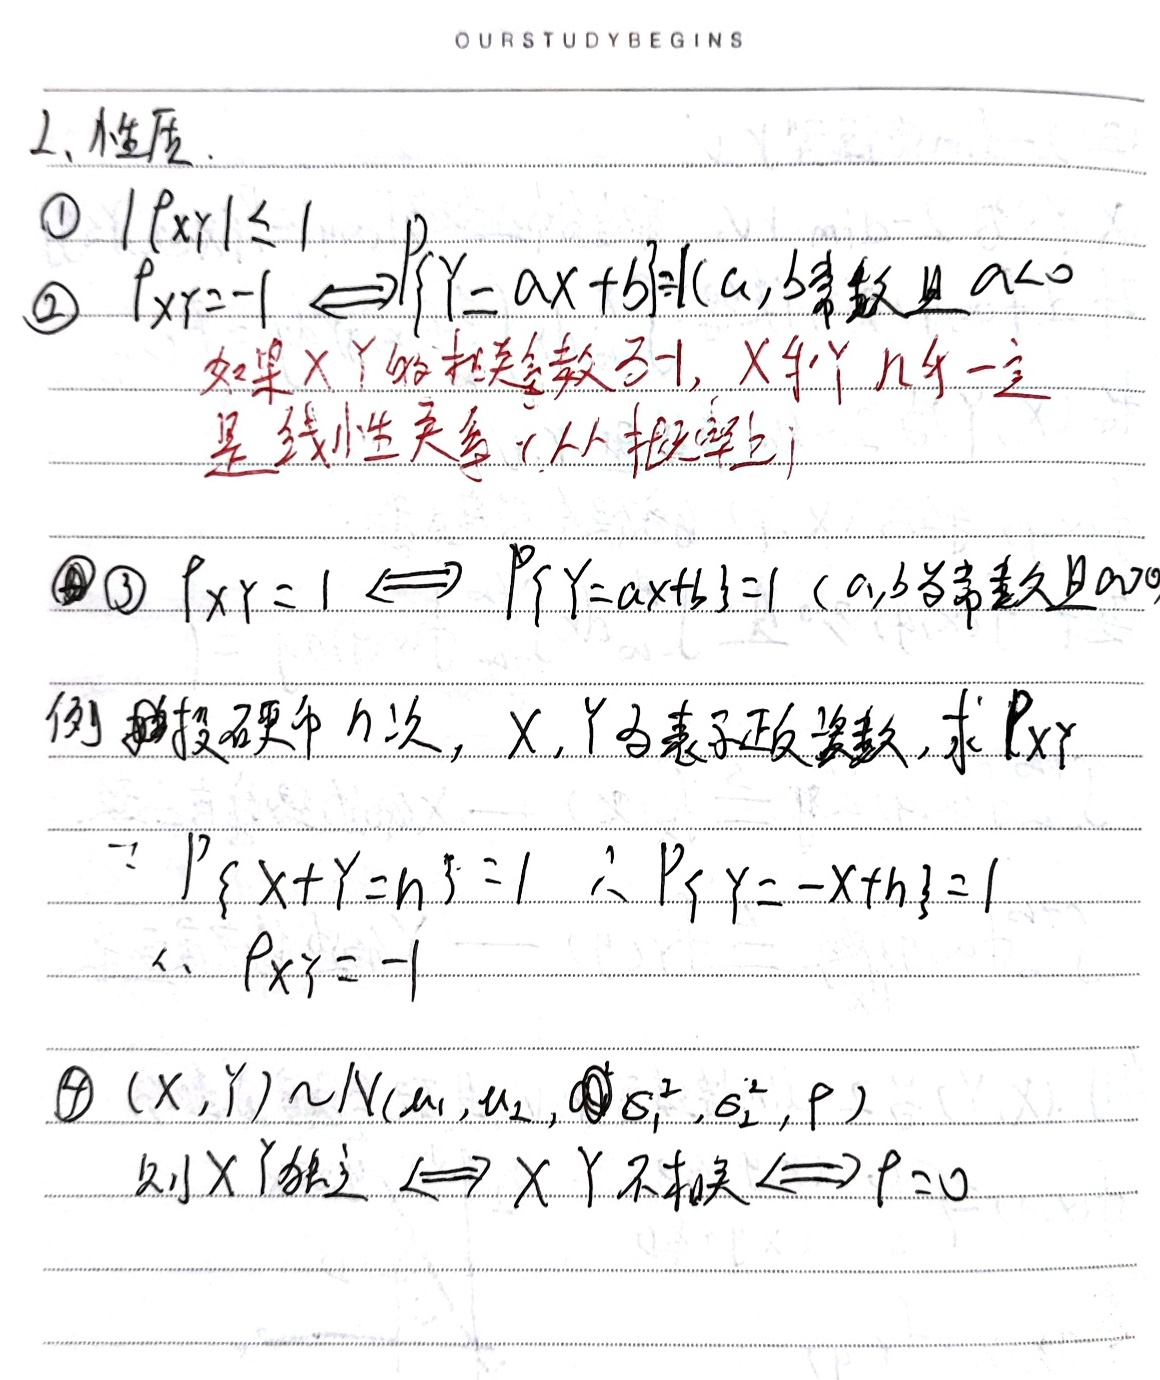 OURSTUDYBEGINS
2、性质.
① |ρXY| ≤ 1
② ρXY=-1 ⟺ P{Y=aX+b}=1(a,b常数且a<0
如果XY的相关系数为-1, X与Y几乎一定
是线性关系(从概率上)
③ ρXY=1 ⟺ P{Y=aX+b}=1 (a,b为常数且a>0)
例 投硬币n次, X,Y为表示正反次数,求ρXY
∵ P{X+Y=n}=1 ∴ P{Y=-X+n}=1
∴ ρXY=-1
④ (X,Y)~N(μ1,μ2,σ1²,σ2²,ρ)
则XY独立 ⟺ XY不相关 ⟺ ρ=0